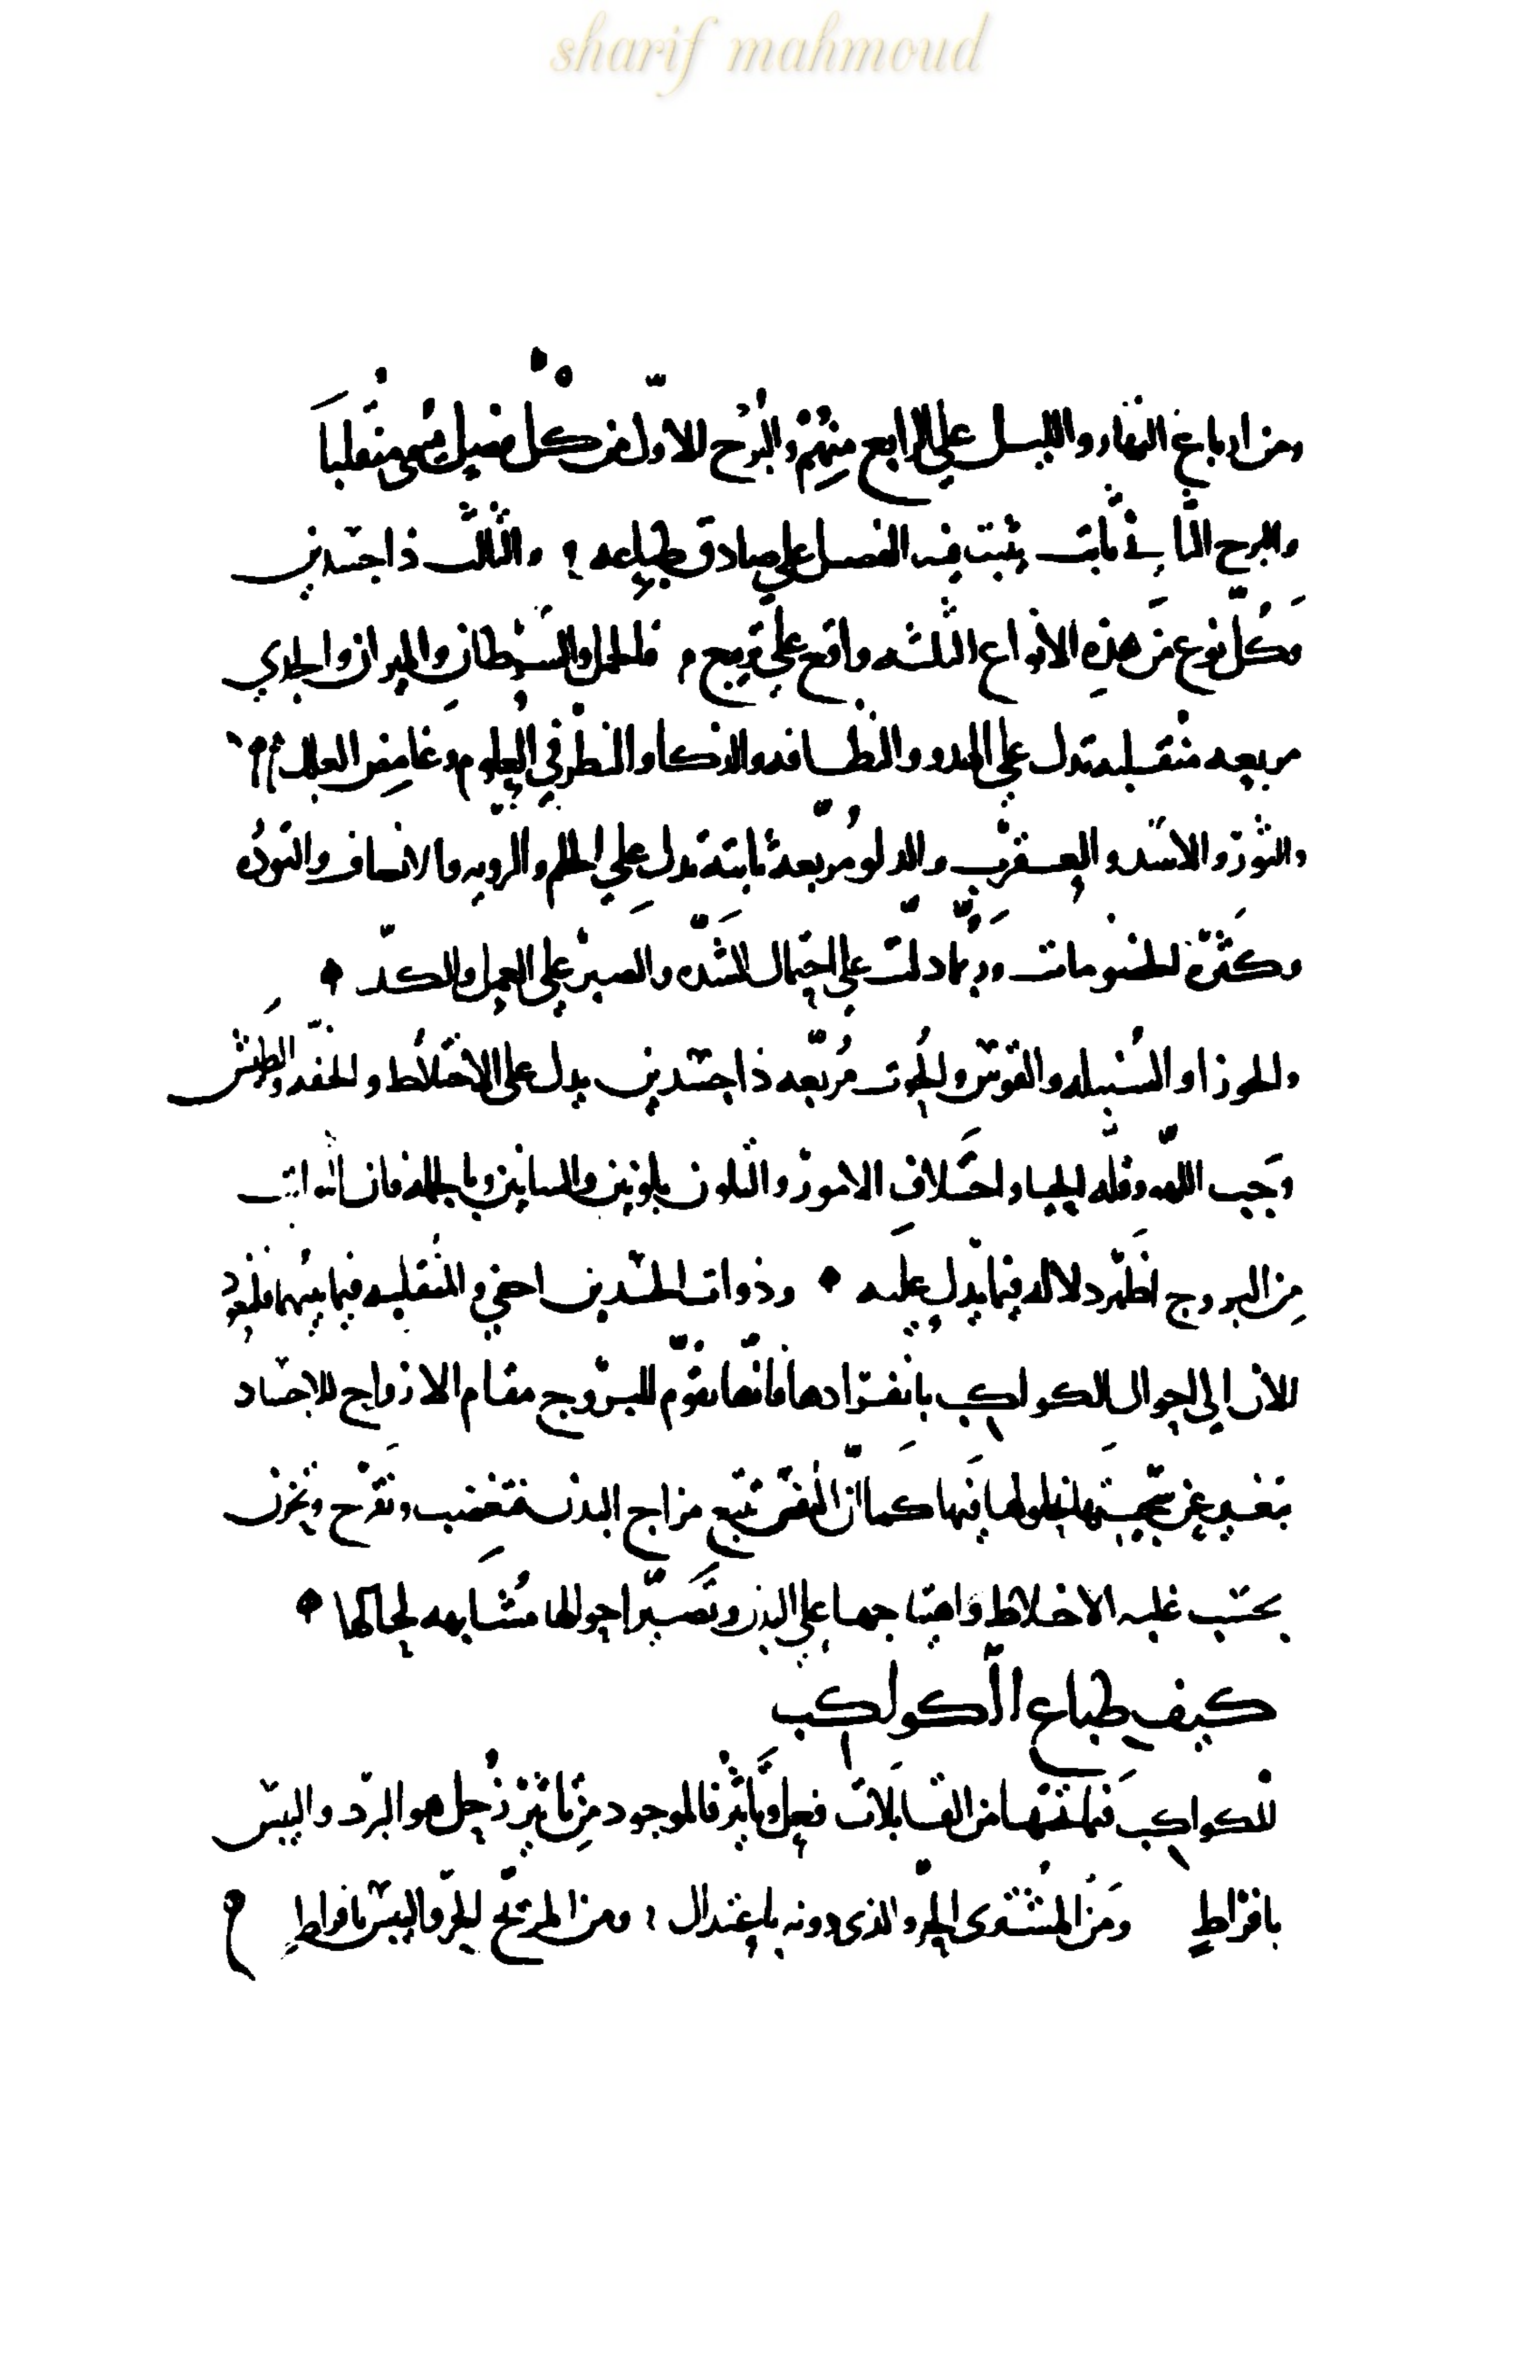 sharif mahmoud
ومن ارباع النهار والليل علي الرابع منهم والبُرج الاول من كل فصل يسمي منقلبا
والبرج الثاني ثابت يثبت فيه الفصل علي صادق طباعه والثالث ذا جسدين
وكل نوع من هذه الانواع الثلثه واقع علي تربيع فالحمل والسرطان والميزان والجدي
مربعه منقلبه تدل علي الهدو والنظافه والذكا والنظر في العلوم وغامض العلل
والثور والاسد والعقرب والدلو مُربّعة ثابتة تدل علي الحلم والرويه والانصاف والتوده
وكثرة الخصومات وربّما دلّت علي احتمال الشدّه والصبر علي العمل والكدّ
والجوزا والسُنبله والقوس والحُوت مُربّعه ذا جسَدين يدل علي الاختلاط والخفّه والطيش
وحب اللهو وقلّه الحيا واختلاف الامور والتلون بلونين ولسانين وبالجمله فان الثوابت
من البروج اظهر دلاله فيما يدل عليه وذوات الجسدين اخفي والمنقلبه فيما بينهما فلنعود
الان الي احوال الكواكب بانفرادها فانّها تقوّم للبروج مقام الارواح للاجساد
تتغير عن سجيتها بحلولها فيها كما انّ النفس تتبع مزاج البدن فتغضب وتفرح وتحزن
بحسب غلبه الاخلاط واهتياجها علي البدن وتصير احوالها مُشابهه لحالها
كيف طباع الكواكب
للكواكب فيما تحتها من القابلات فعل وتاثير فالموجود من تاثير زُحل هو البرد واليبس
بافراط ومن المُشتري الحرّ والندي دونه باعتدال ومن المريّخ الحرّ واليبس بافراط